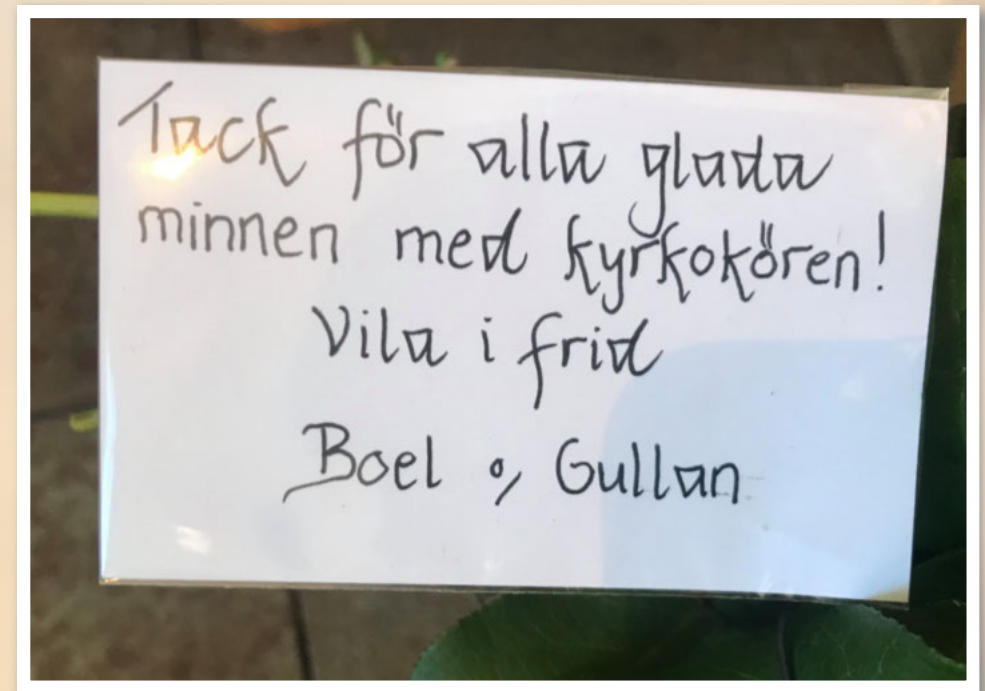 Tack för alla glada
minnen med kyrkokören!
Vila i frid
Boel o, Gullan